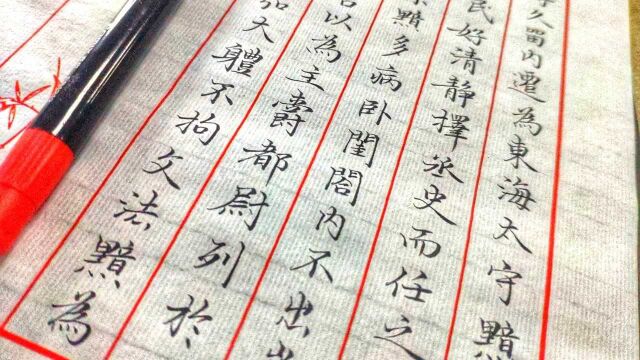 久留內遷為東海太守黯
民好清靜擇丞史而任之
黯多病卧閨閤內不出
以為主爵都尉列於
大體不拘文法黯為